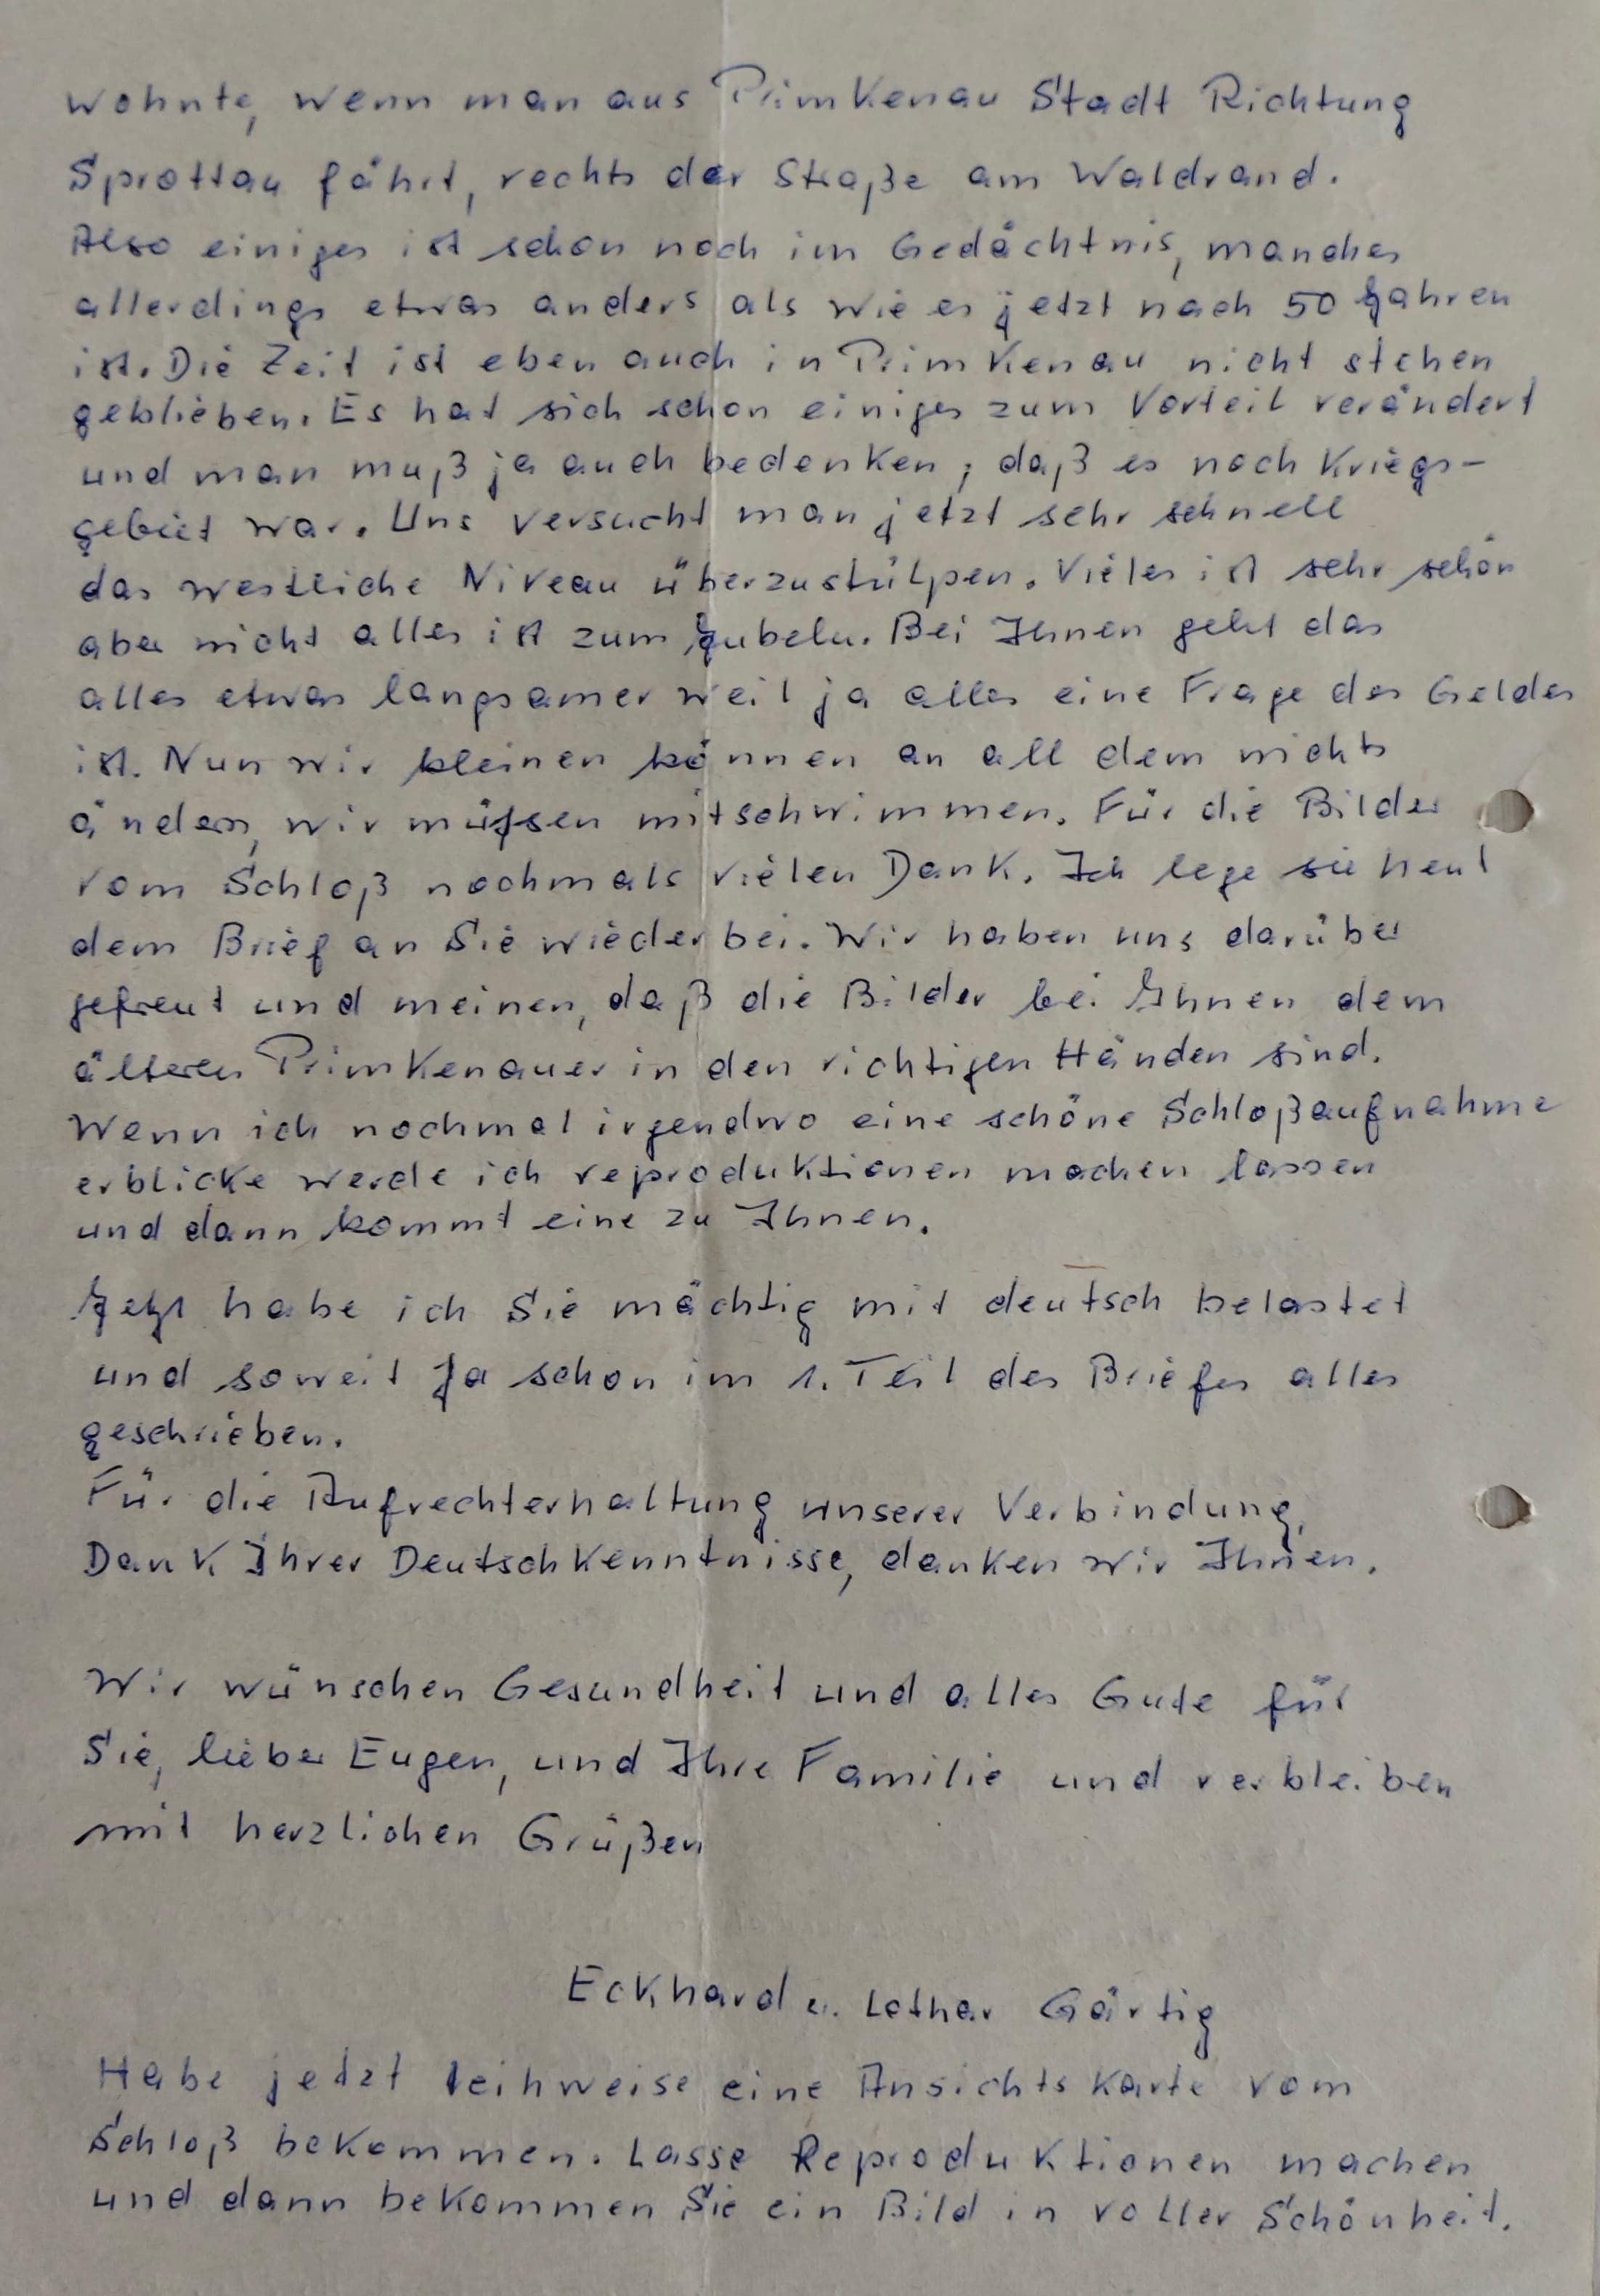 wohnte, wenn man aus Primkenau Stadt Richtung
Sprottau fährt, rechts der Straße am Waldrand.
Also einiges ist schon noch im Gedächtnis, manches
allerdings etwas anders als wie es jetzt nach 50 Jahren
ist. Die Zeit ist eben auch in Primkenau nicht stehen
geblieben. Es hat sich schon einiges zum Vorteil verändert
und man muß ja auch bedenken, daß es noch Kriegs-
gebiet war. Uns versucht man jetzt sehr schnell
das westliche Niveau überzustülpen. Vieles ist sehr schön
aber nicht alles ist zum Jubeln. Bei Ihnen geht das
alles etwas langsamer weil ja alles eine Frage des Geldes
ist. Nun wir kleinen können an all dem nichts
ändern, wir müssen mitschwimmen. Für die Bilder
vom Schloß nochmals vielen Dank. Ich lege sie heut
dem Brief an Sie wieder bei. Wir haben uns darüber
gefreut und meinen, daß die Bilder bei Ihnen dem
älteren Primkenauer in den richtigen Händen sind.
Wenn ich nochmal irgendwo eine schöne Schloßaufnahme
erblicke werde ich reproduktionen machen lassen
und dann kommt eine zu Ihnen.
Jetzt habe ich Sie mächtig mit deutsch belastet
und soweit ja schon im 1. Teil des Briefes alles
geschrieben.
Für die Aufrechterhaltung unserer Verbindung,
Dank Ihrer Deutschkenntnisse, danken wir Ihnen.
Wir wünschen Gesundheit und alles Gute für
Sie, lieber Eugen, und Ihre Familie und verbleiben
mit herzlichen Grüßen
Eckhard u. Lothar Gärtig
Habe jetzt leihweise eine Ansichtskarte vom
Schloß bekommen. Lasse Reproduktionen machen
und dann bekommen Sie ein Bild in voller Schönheit.